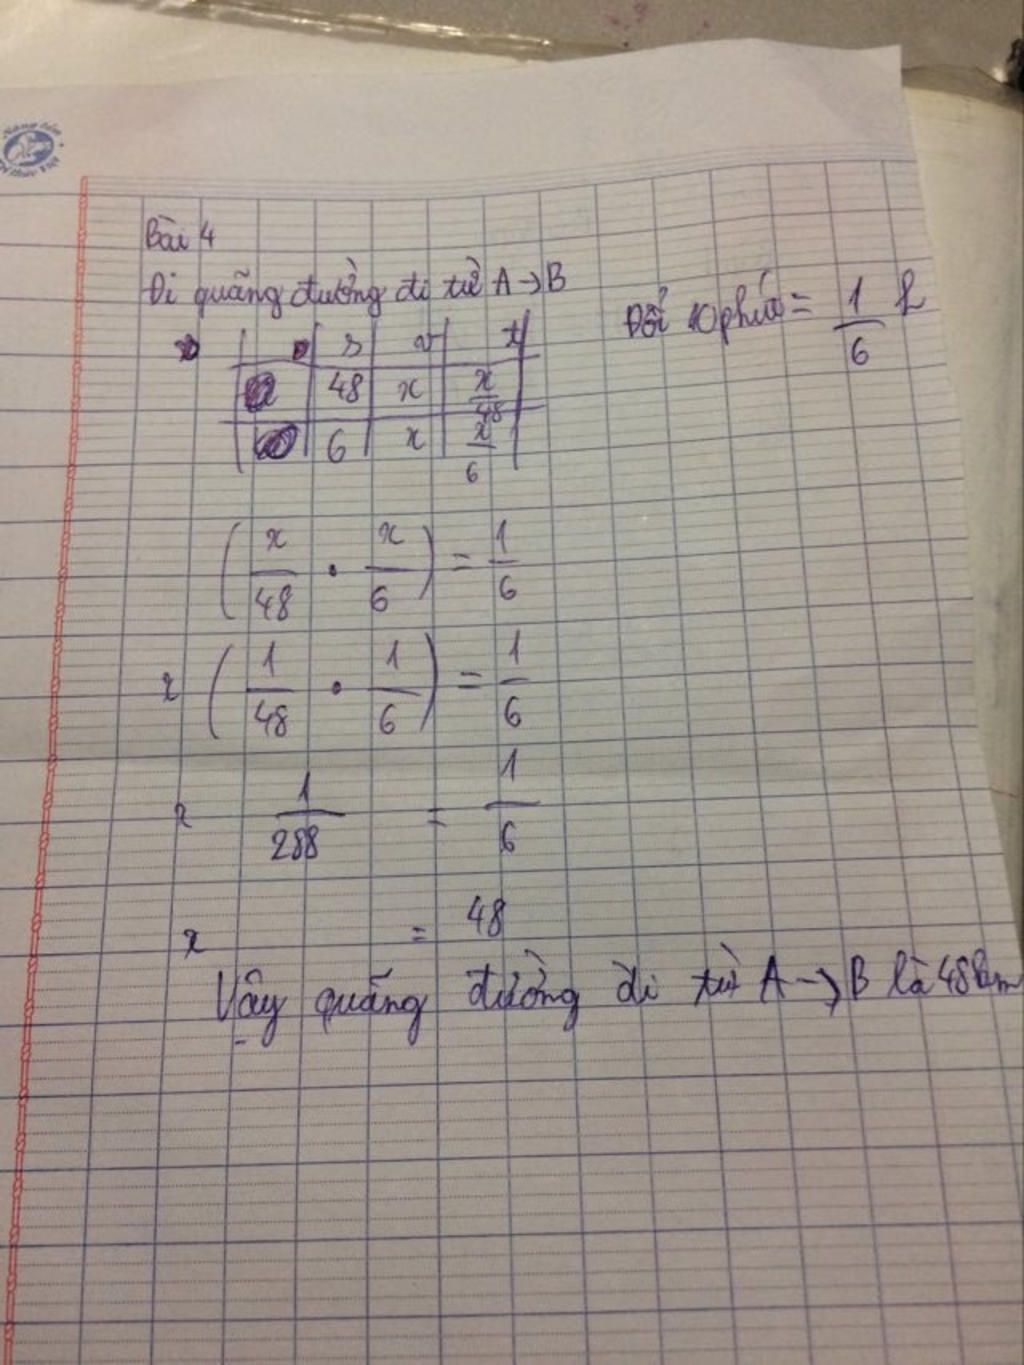 Bài 4
Đi quãng đường đi từ A → B
Đổi 10 phút = 1/6 h
s v t
48 x x/48
6 x x/6
(x/48 . x/6) = 1/6
x (1/48 . 1/6) = 1/6
x 1/288 = 1/6
x = 48
Vậy quãng đường đi từ A → B là 48km